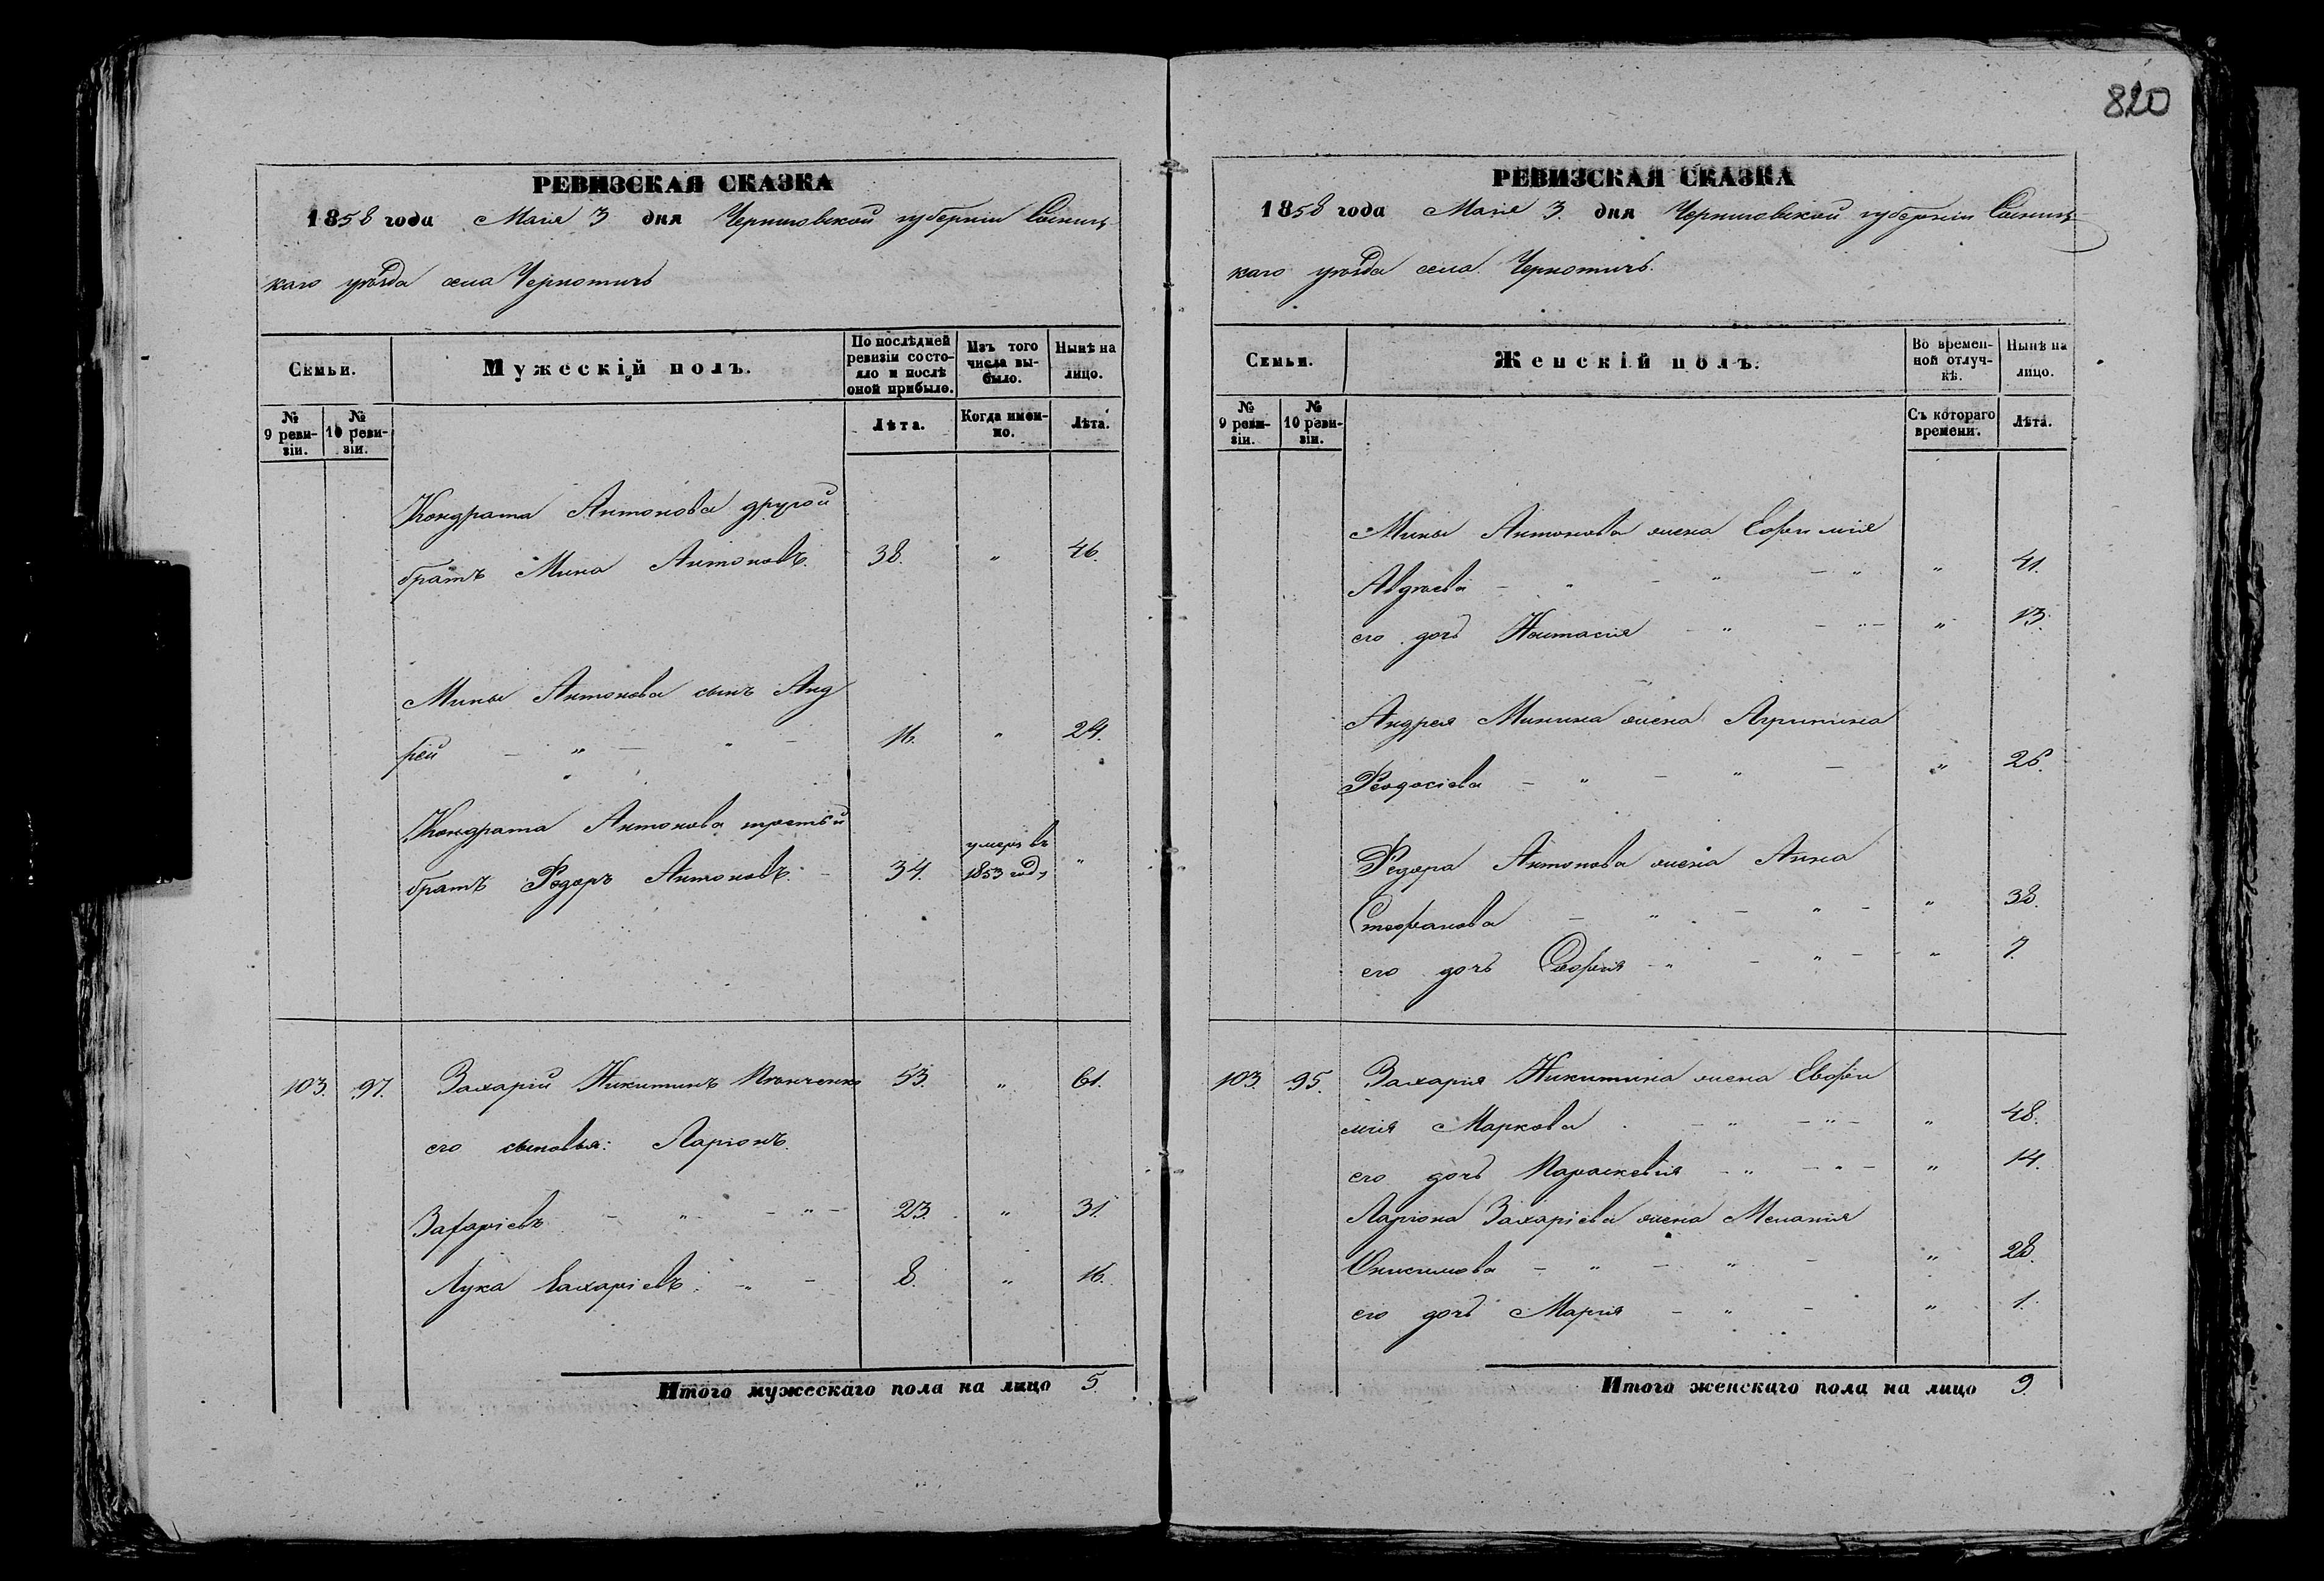 820
РЕВИЗСКАЯ СКАЗКА
1858 года Мая 3 дня Черниговской губерніи Сосниц-
каго уѣзда села Чернотичъ
Семьи.
Мужескій полъ.
По послѣдней ревизіи состо-яло и послѣ оной прибыло.
Изъ того числа вы-было.
Нынѣ на лицо.
№ 9 реви-зіи.
№ 10 реви-зіи.
Лѣта.
Когда имен-но.
Лѣта.
Кондрата Антонова другой
братъ Мина Антоновъ. 38. " 46.
Мины Антонова сынъ Анд
рей - " - " - 16. " 24.
Кондрата Антонова третьй
умеръ въ
братъ Ѳедоръ Антоновъ. - 34. 1853 году "
103. 97. Захарій Никитинъ 53. " 61.
его сыновья: Ларіонъ.
Захаріевъ - " - " - 23. " 31.
Лука Захаріевъ. " - 8. " 16.
Итого мужескаго пола на лицо 5.
РЕВИЗСКАЯ СКАЗКА
1858 года Мая 3. дня Черниговской губерніи Сосниц-
каго уѣзда села Чернотичъ.
Семьи.
Женскій полъ.
Во времен-ной отлуч-кѣ.
Нынѣ на лицо.
№ 9 реви-зіи.
№ 10 реви-зіи.
Съ котораго времени.
Лѣта.
Мины Антонова жена Ефимія
Авдѣева - " - " - " " 41.
его дочь Настасія - " - " - " 13.
Андрея Минина жена Агрипина
Ѳеодосіева - " - " - " 26.
Ѳедора Антонова жена Анна
Стефанова - " - " - " 38.
его дочь Софія - " - " - " 7.
103. 95. Захарія Никитина жена Евфи
мія Маркова - " - " - " 48.
его дочь Параскевія - " - " - " 14.
Ларіона Захаріева жена Меланія
Онисимова - " - " - " 28.
его дочь Марія - " - " 1.
Итого женскаго пола на лицо 9.